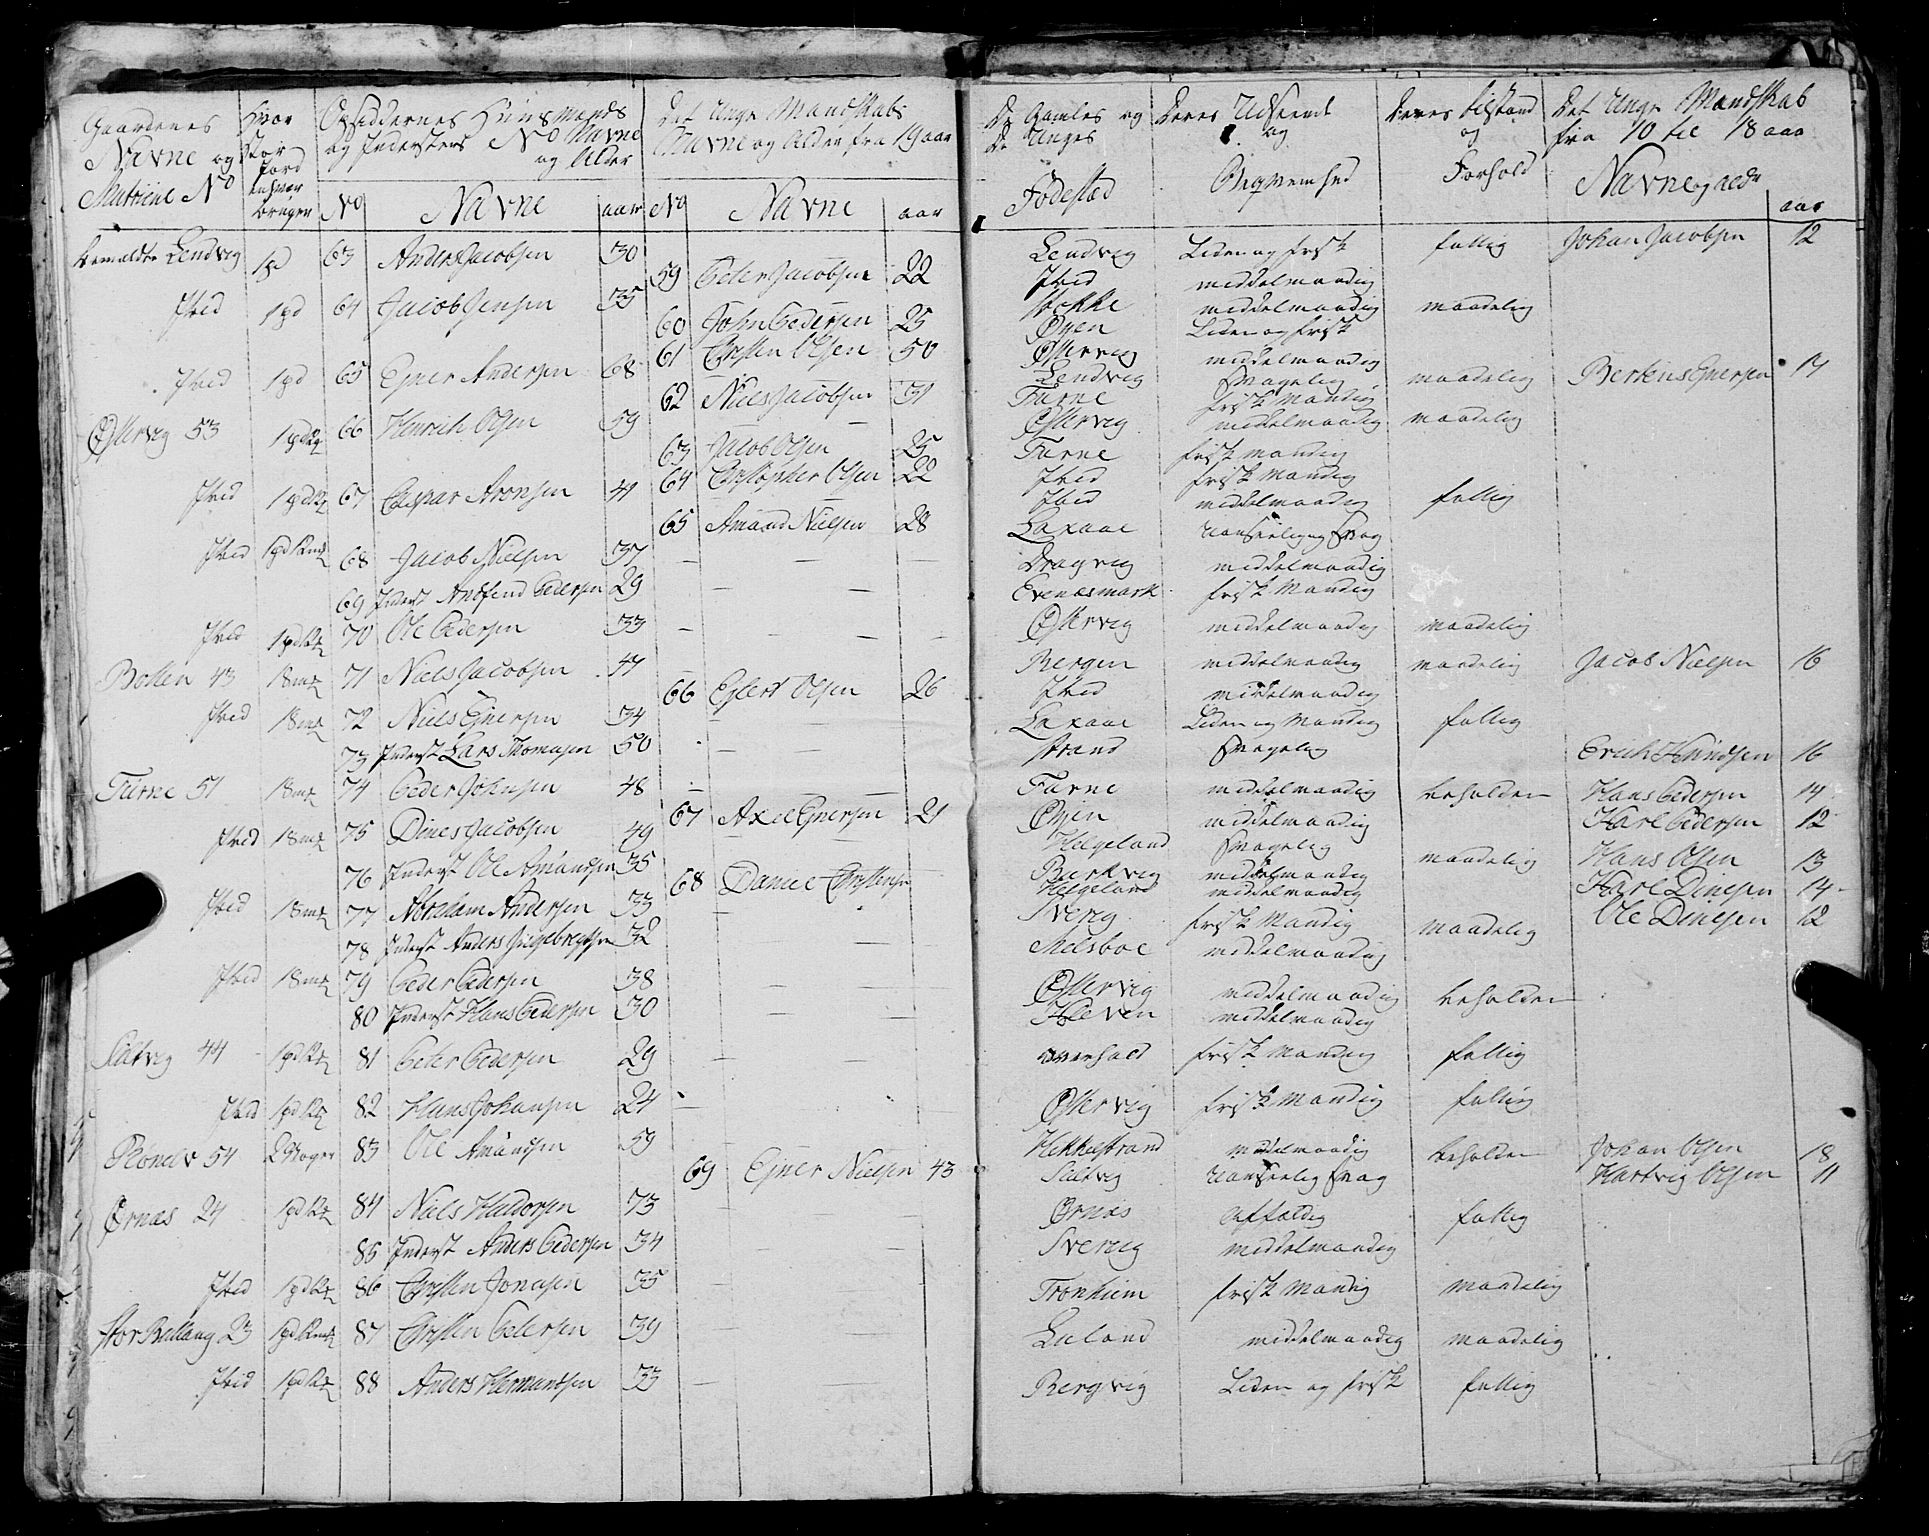 Gaardenes
Navne og
Matricul No
Hvor
stor
Jord
enhver
bruger
Opsiddernes Huusmænds
og Indersters No Navne
og Alder
No Navne aar
Det Unge Mandskabs
Navne og Alder fra 19 aar
No Navne aar
De Gamles og
De Unges
Fødested
Deres Udseende
og
Beqvemhed
Deres tilstand
og
Forhold
Det Unge Mandskab
fra 10 til 18 aar
Navne og alder
aar
Bemeldte Lendvig 1pd 63 Anders Jacobsen 30 Lendvig Liden og frisk fattig Johan Jacobsen 12
59 Peter Jacobsen 22 Ibid middelmaadig
Ibid 1pd 64 Jacob Jensen 35 Stokke middelmaadig maadelig
60 John Pedersen 25 Øyen Liden og frisk
61 Christen Olsen 50 Østervig middelmaadig
Ibid 1pd 65 Ejner Andersen 68 Lendvig Svagelig maadelig Bertens Ejnersen 17
62 Niels Jacobsen 31 Turne frisk Mandig
Østervig 53 66 Henrich Olsen 59 Østervig middelmaadig maadelig
63 Jacob Olsen 25 Turne frisk mandig
64 Christopher Olsen 22 Ibid frisk Mandig
Ibid 67 Caspar Aronsen 41 Ibid middelmaadig fattig
65 Amund Nielsen 28 Laxaae Uanseelig og Svag
Ibid 68 Jacob Nielsen 37 Dragvig middelmaadig
69 Inderst Andfind Pedersen 29 Evenæsmark frisk Mandig
Ibid 70 Ole Pedersen 33 Østervig middelmaadig maadelig
Botten 43 18mk 71 Niels Jacobsen 47 Bergen middelmaadig maadelig Jacob Nielsen 16
66 Eylert Olsen 26 Ibid middelmaadig
Ibid 18mk 72 Niels Ejnersen 34 Laxaae Liden og Mandig fattig
73 Inderst Lars Thomasen 50 Strand Svagelig Erich Henrichsen 16
Turne 51 18mk 74 Peder Johnsen 48 Turne middelmaadig beholden Hans Pedersen 14
67 Axel Ejnersen 21 Øyen middelmaadig Karl Pedersen 12
Ibid 18mk 75 Dines Jacobsen 49 Helgeland Svagelig maadelig Hans Olsen 13
76 Inderst Ole Amundsen 35 Burkvig middelmaadig Karl Dinesen 14
68 Daniel Christensen Helgeland middelmaadig Ole Dinesen 12
Ibid 18mk 77 Abraham Andersen 33 Sverig frisk Mandig maadelig
78 Inderst Anders Ingebregtsen 32 Melsboe middelmaadig
Ibid 18mk 79 Peder Pedersen 38 Østervig middelmaadig beholden
80 Inderst Hans Pedersen 30 Kleven middelmaadig
Saltvig 44 81 Peter Pedersen 29 frisk Mandig fattig
Ibid 82 Hans Johansen 24 Østervig frisk Mandig fattig
54 83 Ole Amundsen 59 Kekkelstrand middelmaadig beholden Johan Olsen 18
69 Ejner Nielsen 43 Saltvig Uanseelig Svag Hartvig Olsen 11
Ørnæs 24 84 Niels Haldorsen 73 Ørnæs Affældig fattig
85 Inderst Anders Pedersen 34 Sverig middelmaadig
Ibid 86 Christen Jonasen 35 Tronhiem frisk Mandig maadelig
Stor Ballang 23 87 Christen Petersen 39 Luland middelmaadig maadelig
Ibid 88 Anders Hermundsen 33 Bergvig Liden og frisk fattig